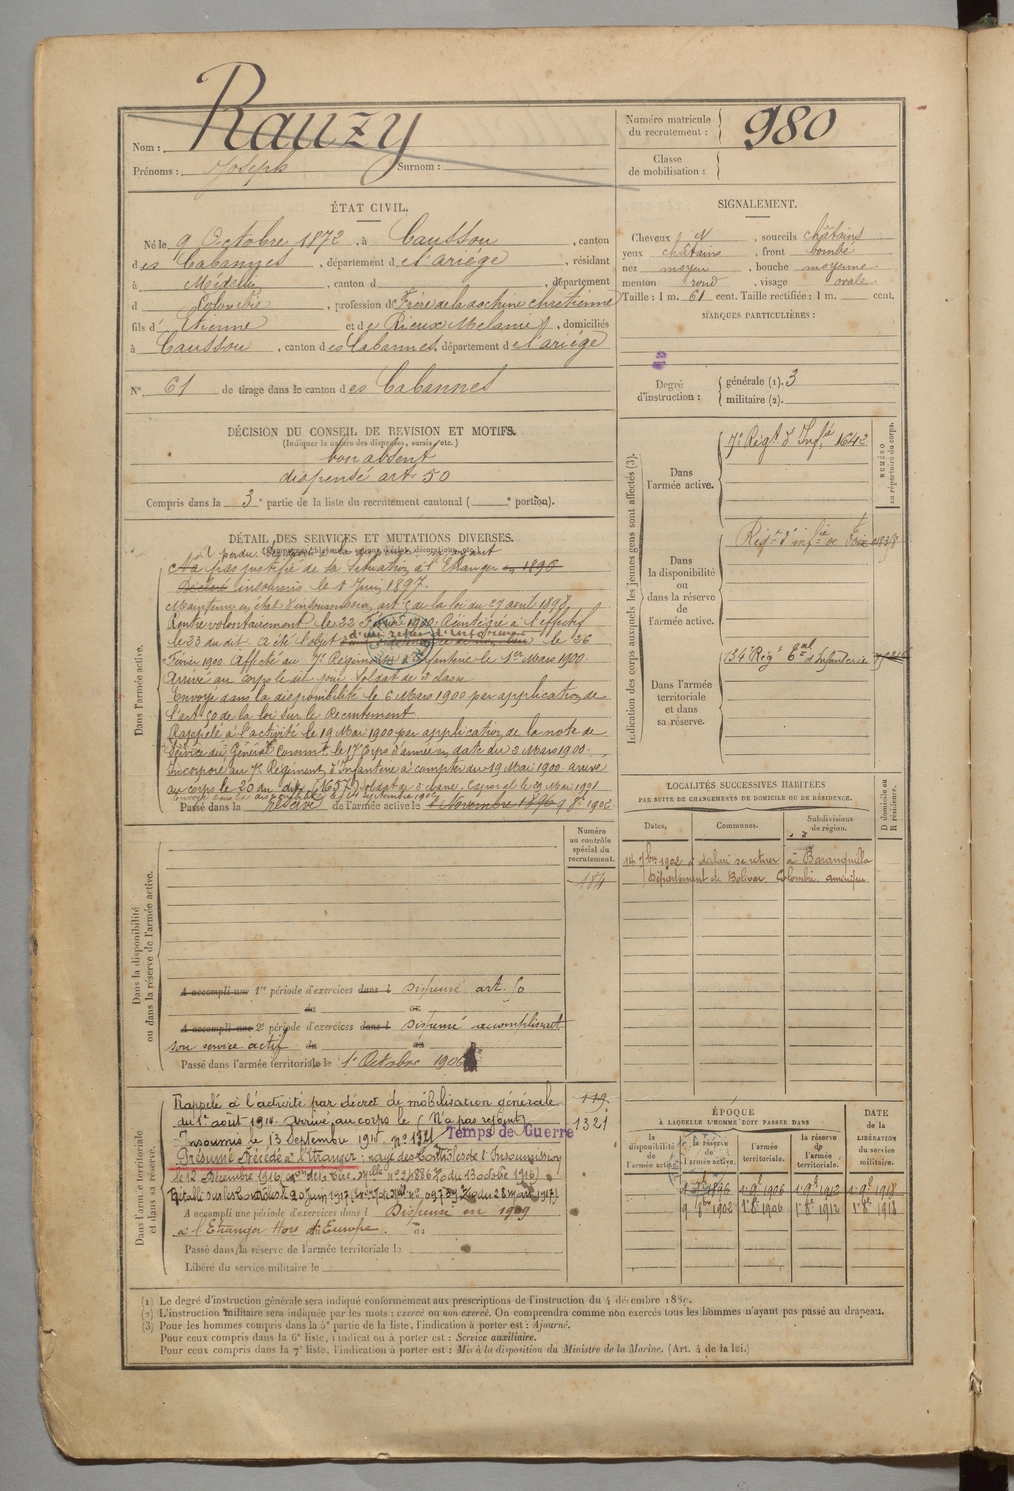 Nom : Rauzy
Prénoms : Joseph Surnom :
Numéro matricule
du recrutement : 980
Classe
de mobilisation :
ÉTAT CIVIL.
Né le 9 Octobre 1872, à Caussou, canton
des Cabannes, département de l'Ariège, résidant
à Médellin, canton d , département
d Colombie, profession de Frère de la doctrine chrétienne
fils d' Etienne et de Rieux Mélanie, domiciliés
à Caussou, canton des Cabannes, département de l'ariége
N° 61 de tirage dans le canton des Cabannes
SIGNALEMENT.
Cheveux N , sourcils châtains
yeux châtains , front bombé
nez moyen , bouche moyenne
menton rond , visage ovale
Taille : 1 m. 61 cent. Taille rectifiée : 1 m. cent.
MARQUES PARTICULIÈRES :
Degré
d'instruction :
générale (1). 3
militaire (2).
DÉCISION DU CONSEIL DE REVISION ET MOTIFS.
(Indiquer la nature des dispenses, sursis, etc.)
bon absent
dispensé art. 50
Compris dans la 3e partie de la liste du recrutement cantonal ( e portion).
DÉTAIL DES SERVICES ET MUTATIONS DIVERSES.
Dans l'armée active.
A pas justifié de sa situation à l'Etranger en 1896
Déclaré insoumis le 1 Juin 1897.
Maintenu en état d'insoumission, art. 5 de la loi du 27 aout 1898
Rentré volontairement le 22 Février 1900 Réintégré à l'effectif
le 23 du dit. A été l'objet d'un refus d'informer le 26
Février 1900. Affecté au 7e Régiment d'Infanterie le 1er Mars 1900.
Arrivé au corps le dit jour Soldat de 2e classe
Envoyé dans la disponibilité le 6 Mars 1900 par application de
l'art. 50 de la loi sur le Recrutement.
Rappelé à l'activité le 19 Mai 1900 par application de la note de
Service du Général Commt. le 17e Corps d'armée en date du 2 Mars 1900.
Incorporé au 7e Régiment d'Infanterie à compter du 19 Mai 1900. arrivé
au corps le 20 du dit. Soldat de 2e classe. Caporal le 29 Mai 1901
envoyé dans la disponibilité le 14 septembre 1902
Passé dans la réserve de l'armée active le 1 Novembre 1896 9 8bre 1902
Indication des corps auxquels les jeunes gens sont affectés (3).
NUMÉRO
au répertoire du corps.
Dans
l'armée active.
7e Régt d'Infie 1642
Dans
la disponibilité
ou
dans la réserve
de
l'armée active.
Régt d'infie de Foix
Dans l'armée
territoriale
et dans
sa réserve.
134e Régt d'Infanterie
LOCALITÉS SUCCESSIVES HABITÉES
PAR SUITE DE CHANGEMENTS DE DOMICILE OU DE RÉSIDENCE.
Dates. Communes. Subdivisions
de région.
D domicile ou
R résidence.
14 7bre 1902 a déclaré se retirer à Baranquilla
Département de Bolivar Colombie. amérique
Numéro
au contrôle
spécial du
recrutement.
184
Dans la disponibilité
ou dans la réserve de l'armée active.
A accompli une 1re période d'exercices dans l Dispensé art. 50
du au
A accompli une 2e période d'exercices dans l Dispensé accomplissant
son service actif du au
Passé dans l'armée territoriale le 1er Octobre 1906
Dans l'armée territoriale
et dans sa réserve.
Rappelé à l'activité par décret de mobilisation générale
du 1er août 1914. arrivé au corps le (N'a pas rejoint)
Insoumis le 13 Septembre 1914. n° 1321 Temps de Guerre
Présumé Décédé à l'Etranger: rayé des Contrôles de l'Insoumission
le 12 Décembre 1916
Rétabli sur les Contrôles le 20 juin 1917
A accompli une période d'exercices dans l Dispensé en 1909
à l'Etranger Hors d'Europe. au
Passé dans la réserve de l'armée territoriale le
Libéré du service militaire le
119
1321
ÉPOQUE
À LAQUELLE L'HOMME DOIT PASSER DANS
DATE
DE LA
LIBÉRATION
du service
militaire.
la
disponibilité
de
l'armée active.
la réserve
de
l'armée active.
l'armée
territoriale.
la réserve
de
l'armée
territoriale.
1 9bre 1896 1 9bre 1906 1 9bre 1912 1 9bre 1918
9 8bre 1902 1er 8bre 1906 1er 8bre 1912 1er 8bre 1918
(1) Le degré d'instruction générale sera indiqué conformément aux prescriptions de l'instruction du 4 décembre 1889.
(2) L'instruction militaire sera indiquée par les mots : exercé ou non exercé. On comprendra comme non exercés tous les hommes n'ayant pas passé au drapeau.
(3) Pour les hommes compris dans la 5e partie de la liste, l'indication à porter est : Ajourné.
Pour ceux compris dans la 6e liste, l'indication à porter est : Service auxiliaire.
Pour ceux compris dans la 7e liste, l'indication à porter est : Mis à la disposition du Ministre de la Marine. (Art. 4 de la loi.)